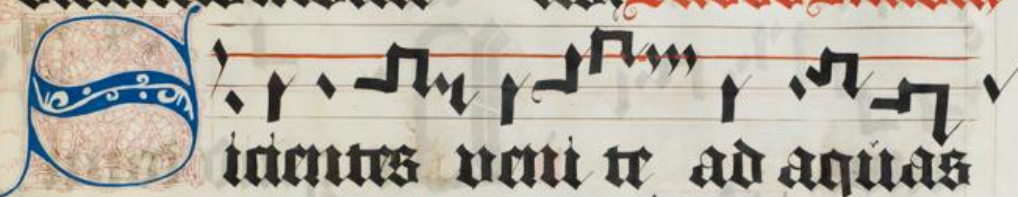 Sitientes veni te ad aquas